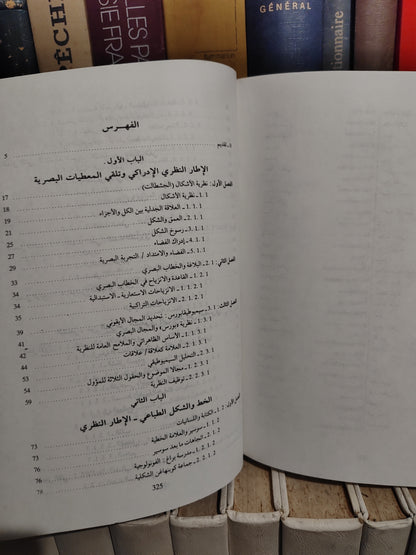 PÊCHE
LLES PA
SIE FRAN
GÉNÉRAL
ctionnaire
الفهرس
5 تقديم
الباب الأول
الإطار النظري الإدراكي وتلقي المعطيات البصرية
الفصل الأول: نظرية الأشكال (الجشطالت) 17
1.1.1 ـ نظرية الأشكال 18
2.1.1 ـ العلاقة الجدلية بين الكل والأجزاء 19
3.1.1 ـ العمق والشكل 21
رسوخ الشكل 25
4.1.1 ـ إدراك الفضاء 27
5.1.1 ـ الفضاء والامتداد / التجربة البصرية 32
الفصل الثاني: 2.1 ـ البلاغة والخطاب البصري 33
1.2.1 ـ القاعدة والانزياح في الخطاب البصري 34
2.2.1 ـ الانزياحات الاستعارية ـ الاستبدالية 35
3.2.1 ـ الانزياحات التراكبية 37
الفصل الثالث: 3.1 ـ سيميوطيقا بورس. تحديد المجال الأيقوني 39
1.3.1 ـ نظرية «بورس» والمجال البصري 40
1.3.1 ـ الأساس الظاهراتي والملامح العامة للنظرية 41
2.3.1 ـ العلامة كعلاقة / علاقات 42
2.3.1 ـ التحليل السيميوطيقي
3.3.1 ـ مجالا الموضوع والحقول الثلاثة للمؤول 54
توظيف النظرية 59
الباب الثاني
الخط والشكل الطباعي ـ الإطار النظري
الفصل الأول: 1.2 ـ الكتابة واللسانيات 73
1.1.2 ـ سوسير والعلامة الخطية 73
2.1.2 ـ اتجاهات ما بعد سوسير
1.2.1.2 ـ مدرسة براغ: الفونولوجية 76
2.2.1.2 ـ جماعة كوبنهاغن الشكلية 78
325